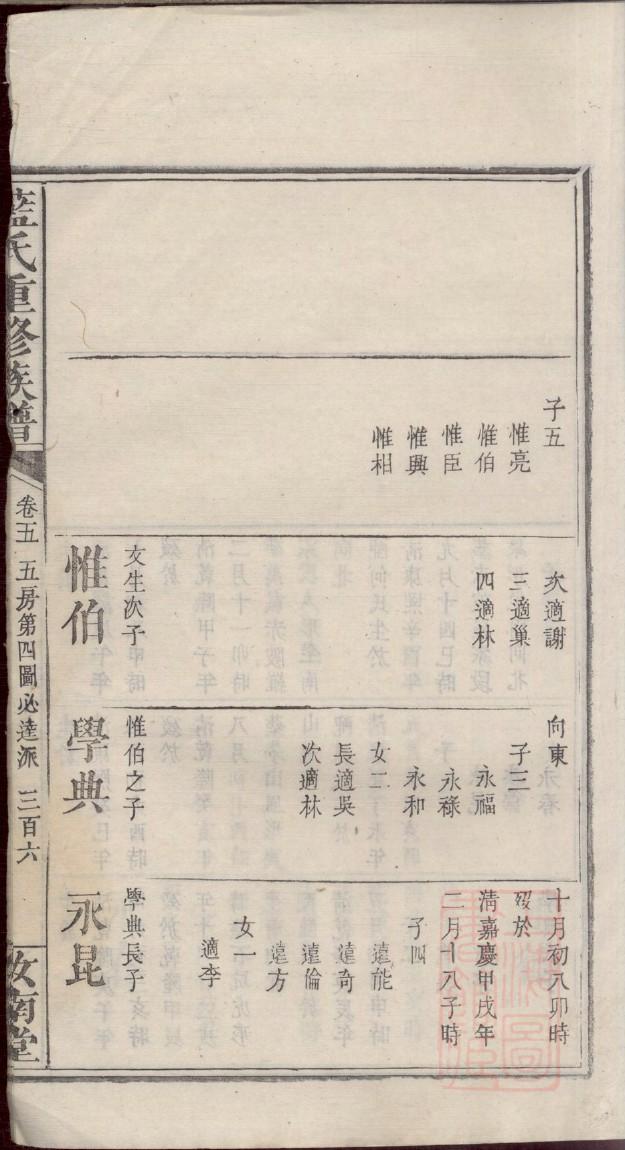 子五
惟亮
惟伯
惟臣
惟興
惟相
次適謝
三適巢
四適林
文生次子
惟伯
向東
子三
永福
永祿
永和
女二
長適吳
次適林
惟伯之子
學典
十月初八卯時
歿於
淸嘉慶甲戌年
二月十八子時
子四
遠能
遠奇
遠倫
遠方
女一
適李
學典長子
永昆
藍氏重修族譜
卷五 五房第四圖必達派 三百六
汝南堂